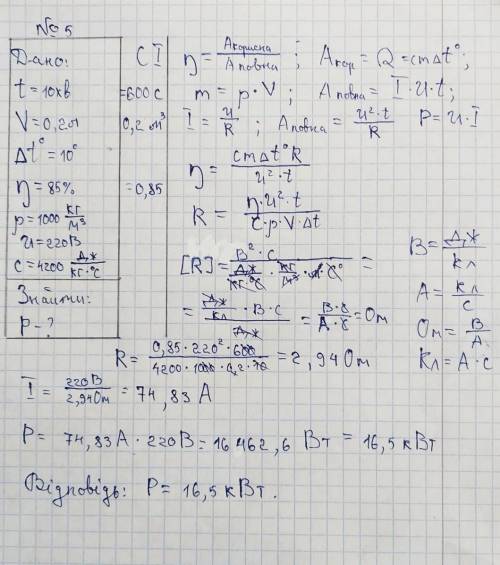 № 5
Дано:
СІ
t = 10хв
= 600 с
V = 0,2л
0,2 м³
Δt° = 10°
η = 85%
= 0,85
ρ = 1000 кг/м³
u = 220В
c = 4200 Дж/кг·°С
Знайти:
P - ?
η = Aкорисна/Aповна ; Aкор = Q = cmΔt°;
m = ρ · V ; Aповна = I · u · t;
I = u/R ; Aповна = u²·t/R P = u · I
η = cmΔt°R/u²·t
R = η·u²·t/c·ρ·V·Δt
[R] = В²·с/(Дж/кг·°С · кг/м³ · м³ · С°) =
= Дж/Кл · В · с/Дж = В·с/А·с = Ом
В = Дж/Кл
А = Кл/с
Ом = В/А
Кл = А·с
R = 0,85·220²·600/4200·1000·0,2·10 = 2,94 Ом
I = 220В/2,94Ом = 74,83 А
P = 74,83А · 220В = 16462,6 Вт = 16,5 кВт
Відповідь: P = 16,5 кВт.